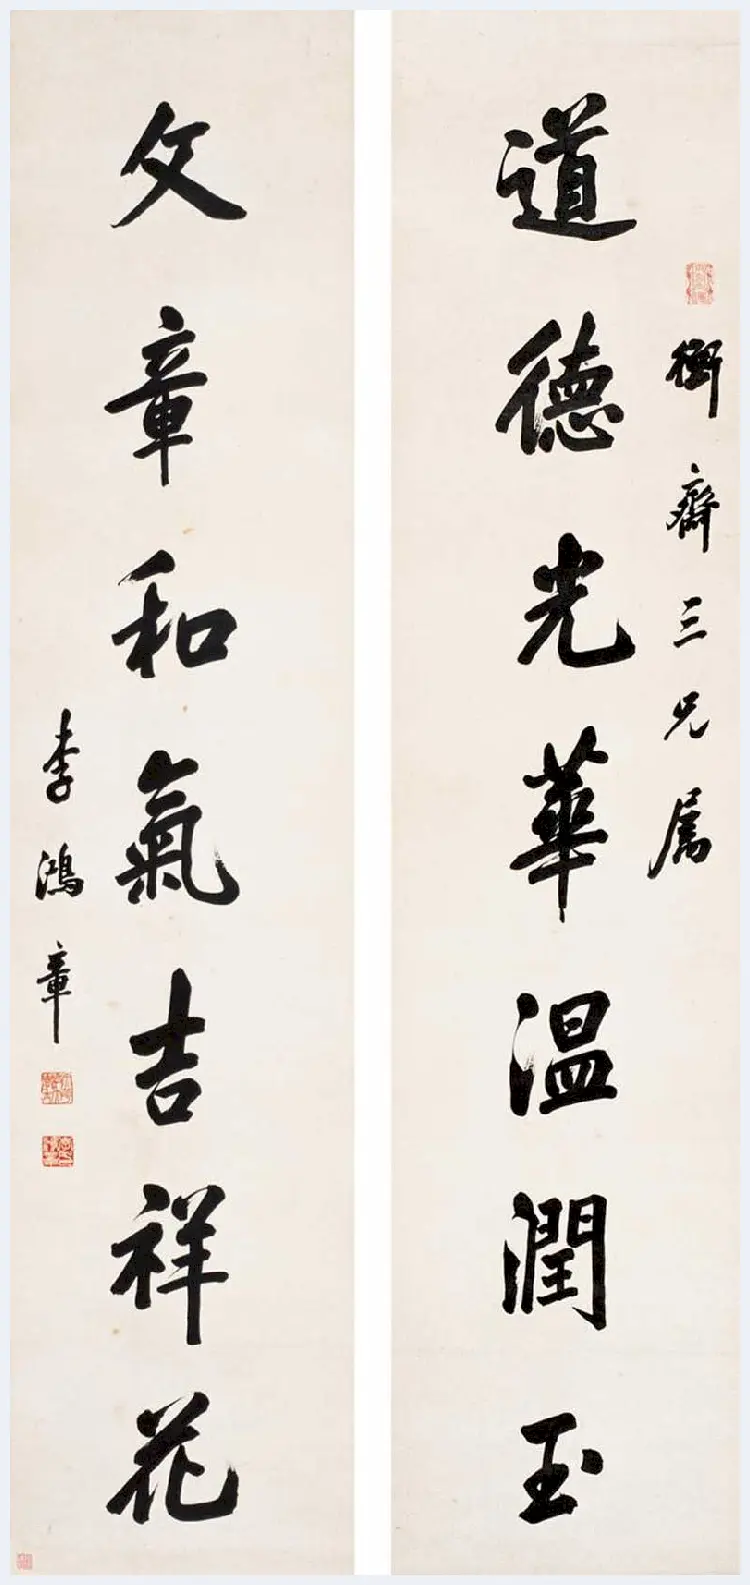 道德光華温潤玉
衡齋三兄属
文章和氣吉祥花
李鴻章